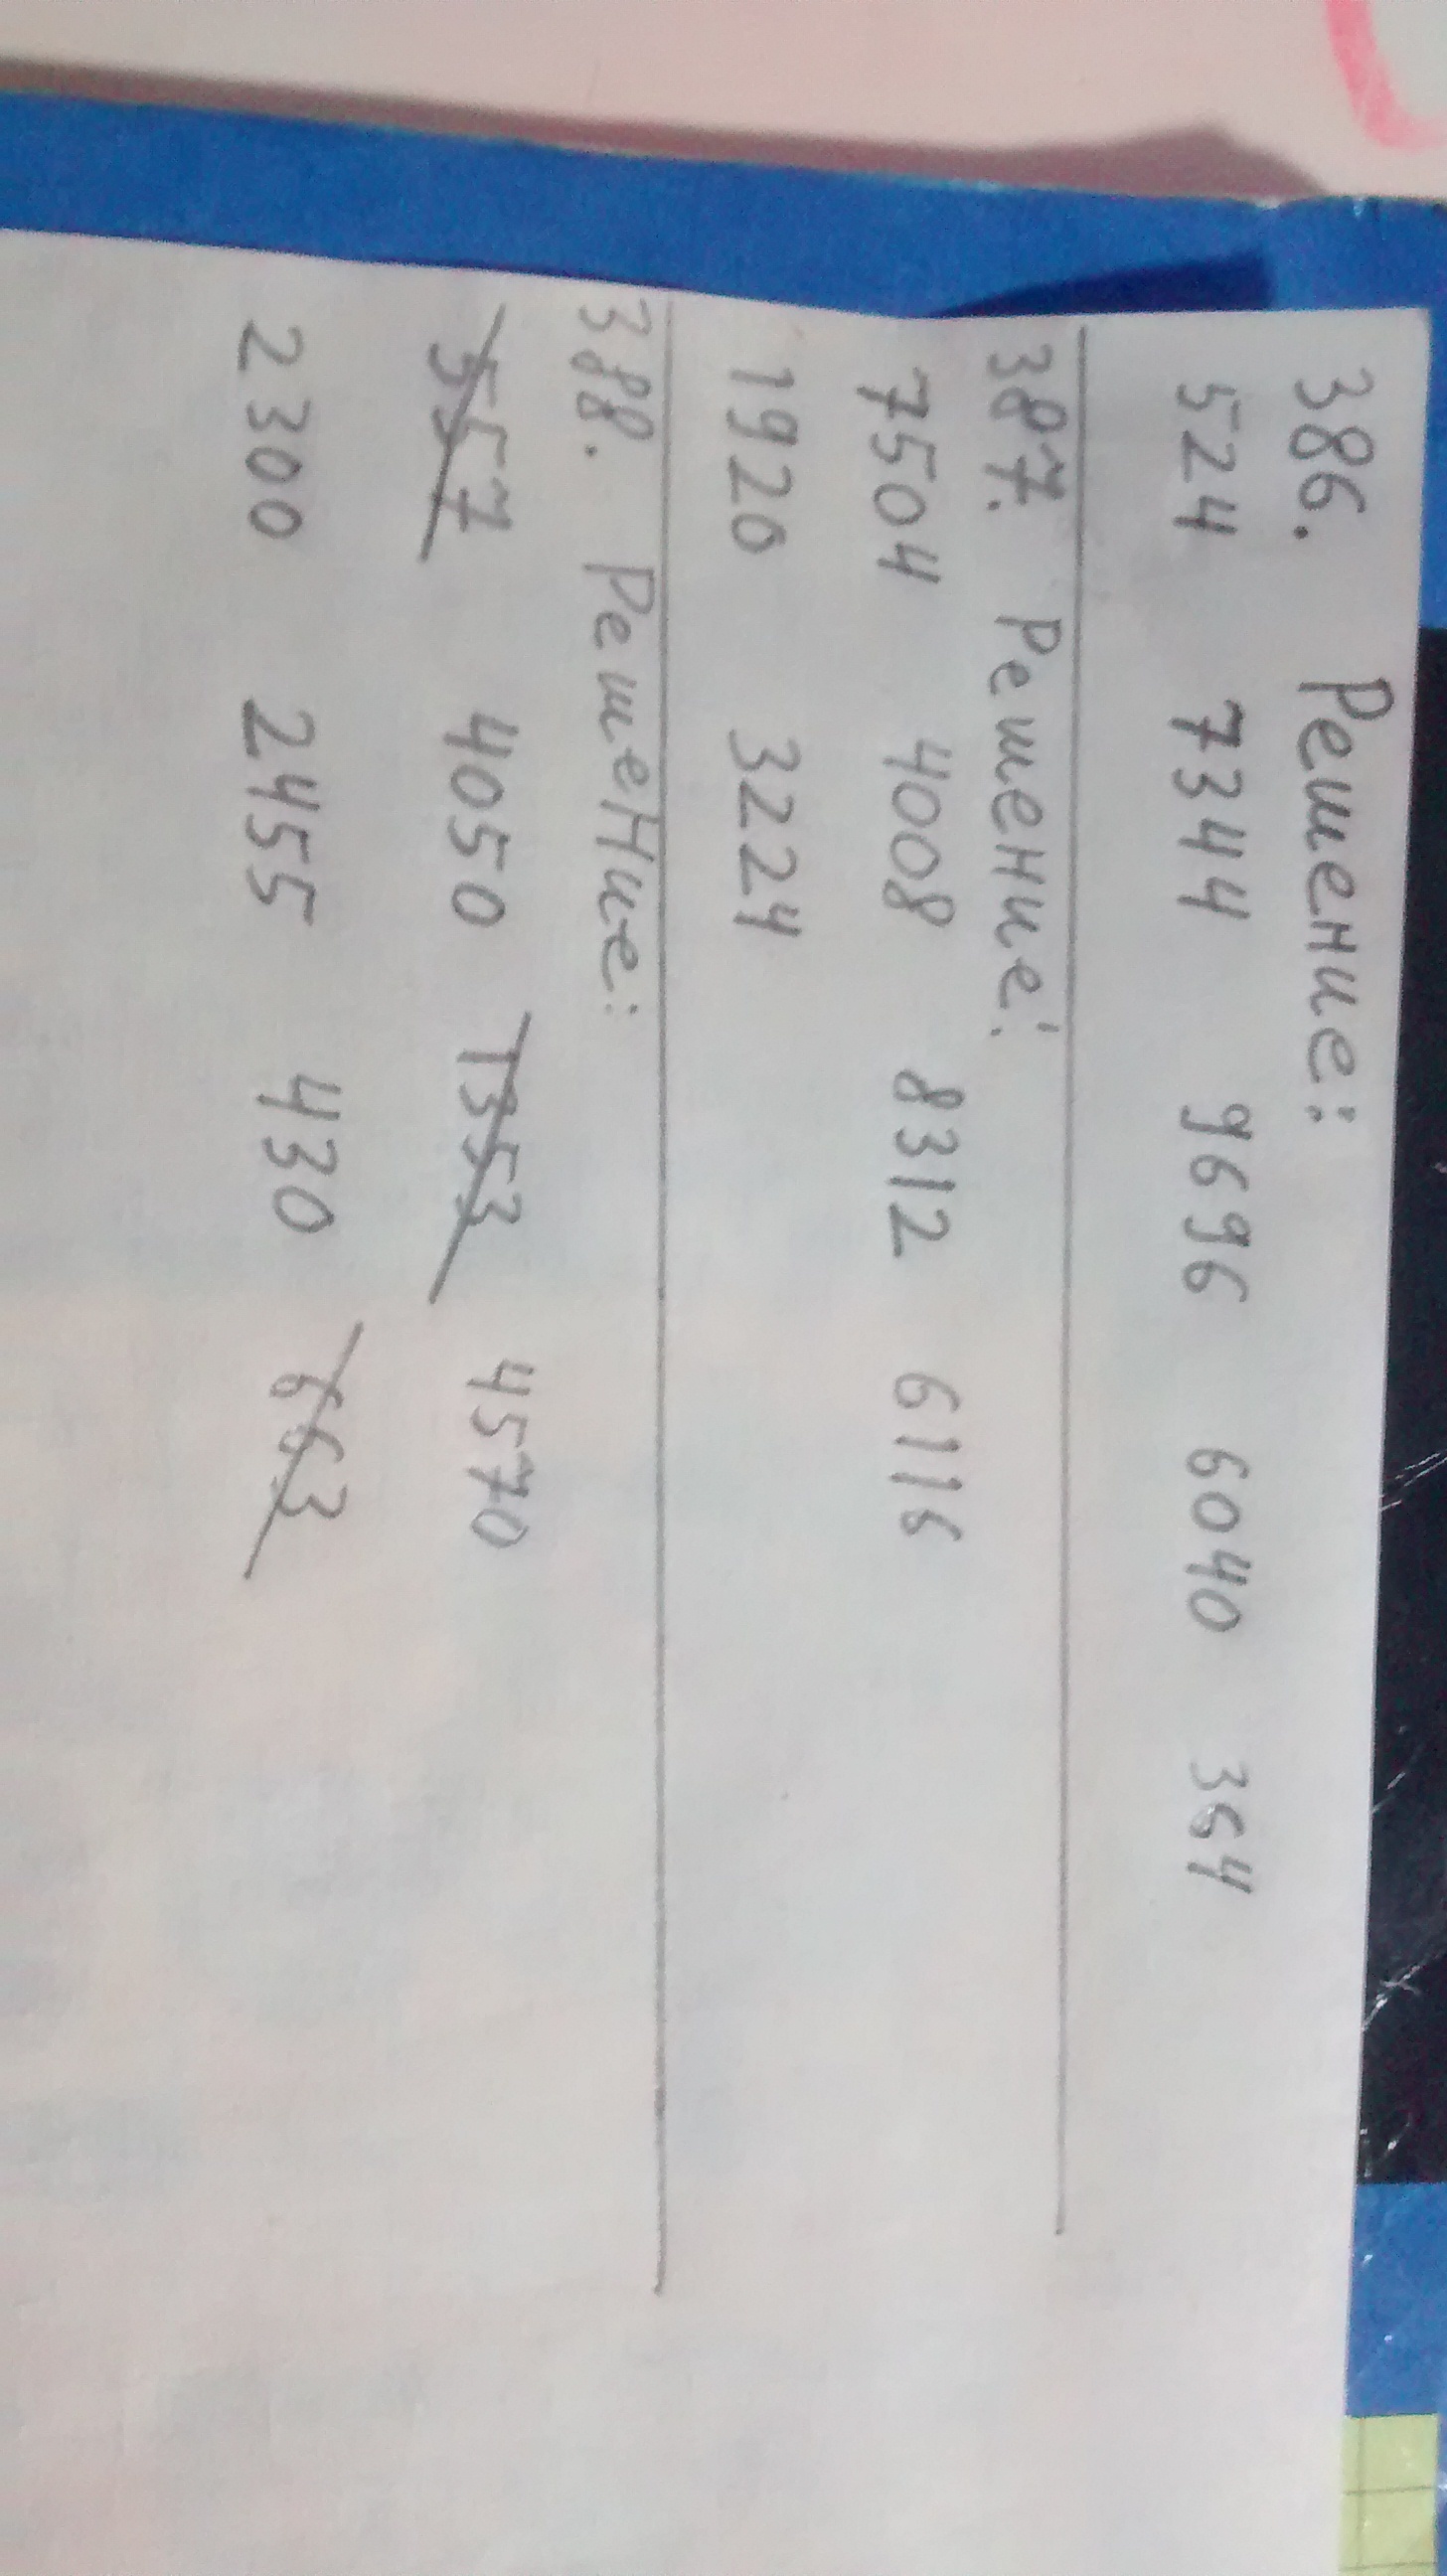 386. Решение:
524 7344 9696 6040 364
387. Решение:
7504 4008 8312 6116
1920 3224
388. Решение:
557 4050 1353 4570
2300 2455 430 663